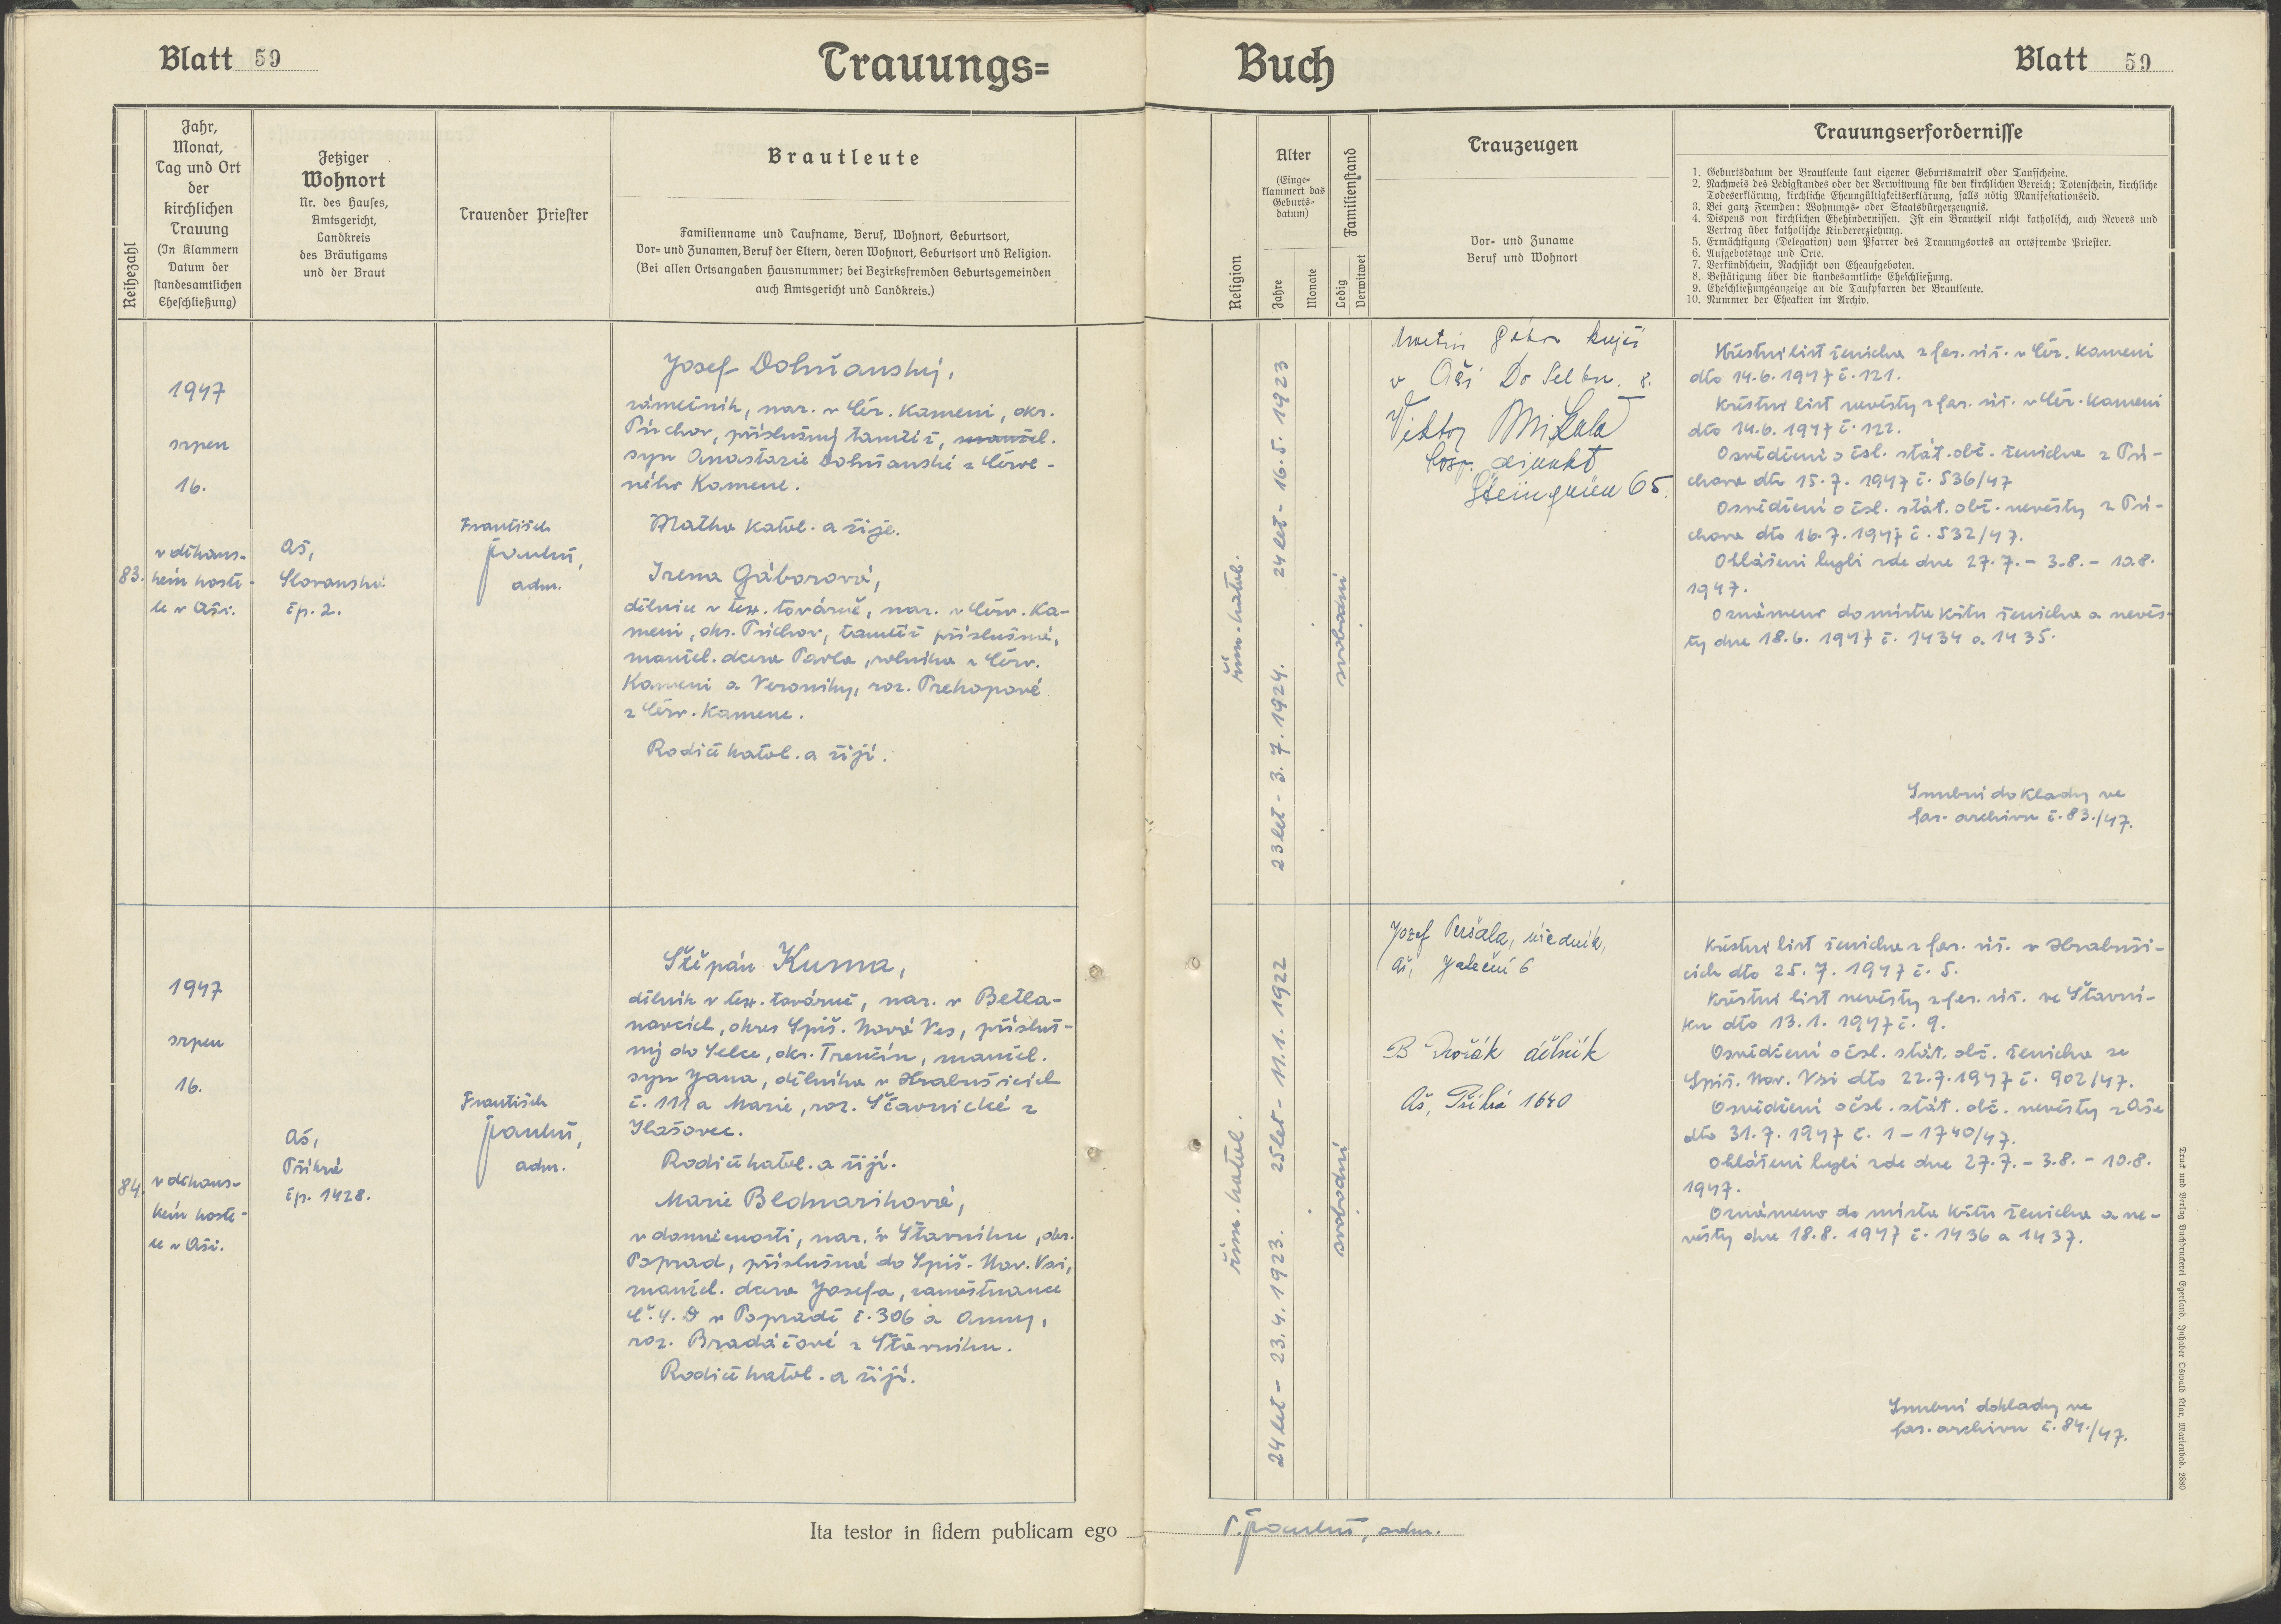 Blatt 59
Trauungs=
Reihezahl
Jahr,
Monat,
Tag und Ort
der
kirchlichen
Trauung
(In Klammern
Datum der
standesamtlichen
Eheschließung)
Jetziger
Wohnort
Nr. des Hauses,
Amtsgericht,
Landkreis
des Bräutigams
und der Braut
Trauender Priester
Brautleute
Familienname und Taufname, Beruf, Wohnort, Geburtsort,
Vor- und Zunamen, Beruf der Eltern, deren Wohnort, Geburtsort und Religion.
(Bei allen Ortsangaben Hausnummer; bei Bezirksfremden Geburtsgemeinden
auch Amtsgericht und Landkreis.)
83.
1947
srpen
16.
v děkans-
kém koste-
le v Aši.
Aš,
Slovanská
čp. 2.
František
adm.
Josef Dolňanský,
zámečník, nar. v Čer. Kameni, okr.
Púchov, příslušný tamtéž, manžel.
syn Anastazie Dolňanské z Červe-
ného Kamene.
Matka katol. a žije.
Irena Gáborová,
dělnice v tex. továrně, nar. v Červ. Ka-
meni, okr. Púchov, tamtéž příslušná,
manžel. dcera Pavla, rolníka v Červ.
Kameni a Veroniky, roz. Prekopové
z Červ. Kamene.
Rodiče katol. a žijí.
84.
1947
srpen
16.
v děkans-
kém koste-
le v Aši.
Aš,
Příkrá
čp. 1428.
František
adm.
Štěpán Kuma,
dělník v tex. továrně, nar. v Betla-
novcích, okres Spiš. Nová Ves, přísluš-
ný do Selce, okr. Trenčín, manžel.
syn Jana, dělníka v Hrabušicích
č. 111 a Marie, roz. Ščavnické z
Ilašovec.
Rodiče katol. a žijí.
Marie Bednariková,
v domácnosti, nar. v Štavníku, okr.
Poprad, příslušná do Spiš. Nov. Vsi,
manžel. dcera Josefa, zaměstnance
Č.S.D v Popradě č. 306 a Anny,
roz. Bradáčové z Štavníku.
Rodiče katol. a žijí.
Ita testor in fidem publicam ego
Buch
Blatt 59
Religion
Alter
(Einge-
klammert das
Geburts-
datum)
Jahre
Monate
Familienstand
Ledig
Verwitwet
Trauzeugen
Vor- und Zuname
Beruf und Wohnort
Trauungserfordernisse
1. Geburtsdatum der Brautleute laut eigener Geburtsmatrik oder Taufscheine.
2. Nachweis des Ledigstandes oder der Verwitwung für den kirchlichen Bereich; Totenschein, kirchliche
Todeserklärung, kirchliche Eheungültigkeitserklärung, falls nötig Manifestationseid.
3. Bei ganz Fremden: Wohnungs- oder Staatsbürgerzeugnis.
4. Dispens von kirchlichen Ehehindernissen. Ist ein Brautteil nicht katholisch, auch Revers und
Vertrag über katholische Kindererziehung.
5. Ermächtigung (Delegation) vom Pfarrer des Trauungsortes an ortsfremde Priester.
6. Aufgebotstage und Orte.
7. Verkündschein, Nachsicht von Eheaufgeboten.
8. Bestätigung über die standesamtliche Eheschließung.
9. Eheschließungsanzeige an die Taufpfarren der Brautleute.
10. Nummer der Eheakten im Archiv.
řím. katol.
24 let - 16.5. 1923
23 let - 3. 7. 1924.
svobodní
v Aši
Viktor Mikula
adjunkt
65.
Křestní list ženicha z far. úř. v Čer. Kameni
dto 14.6.1947 č. 121.
Křestní list nevěsty z far. úř. v Čer. Kameni
dto 14.6.1947 č. 122.
Osvědčení o čsl. stát. obč. ženicha z Pú-
chova dto 15.7. 1947 č. 536/47
Osvědčení o čsl. stát. obč. nevěsty z Pú-
chova dto 16.7.1947 č. 532/47.
Ohlášeni byli zde dne 27.7. - 3.8. - 10.8.
1947.
Oznámeno do místa křtu ženicha a nevěs-
ty dne 18.6. 1947 č. 1434 a 1435.
Snubní doklady ve
far. archivu č. 83./47.
řím. katol.
25 let - 11.1. 1922
24 let - 23.4. 1923.
svobodní
Jozef Peršala, úředník,
Aš, 6
B Dvořák dělník
Aš, Příkrá 1640
Křestní list ženicha z far. úř. v Hrabuši-
cích dto 25.7. 1947 č. 5.
Křestní list nevěsty z far. úř. ve Štavní-
ku dto 13.1. 1947 č. 9.
Osvědčení o čsl. stát. obč. ženicha ze
Spiš. Nov. Vsi dto 22.7.1947 č. 902/47.
Osvědčení o čsl. stát. obč. nevěsty z Aše
dto 31.7. 1947 č. 1-1740/47.
Ohlášeni byli zde dne 27.7. - 3.8. - 10.8.
1947.
Oznámeno do místa křtu ženicha a ne-
věsty dne 18.8. 1947 č. 1436 a 1437.
Snubní doklady ve
far. archivu č. 84./47.
adm.
Druck und Verlag Buchdruckerei Egerland, Inhaber Oswald Klar, Marienbad. 2880